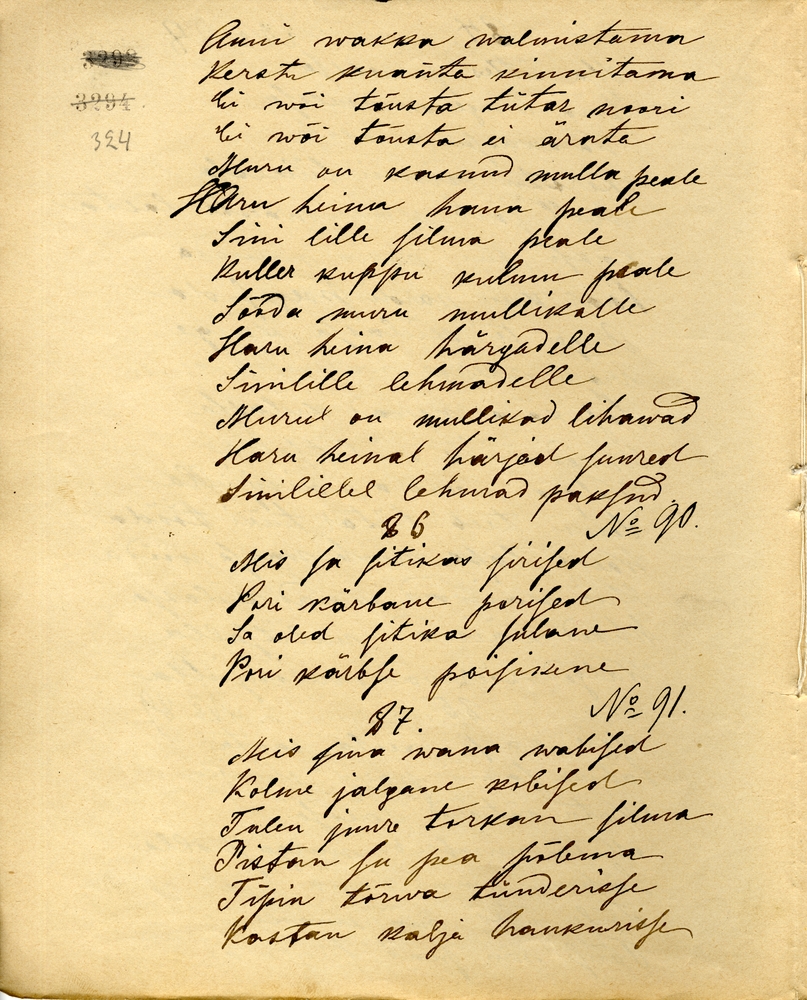 3294.
324
Anni wakka walmistama
Kerstu kuanta kinnitama
Ei wõi tõusta tütar noori
Ei wõi tõusta ei ärata
Muru on kasnud mulla peale
Haru heina hana peale
Sini lille silma peale
Kuller kuppu kulmu peale
Sööda muru mullikalle
Haru heina härgadelle
Sinilille lehmadelle
Murul on mullikad lihawad
Haru heinal härjad suured
Sinilillel lehmad paksud.
86 No 90.
Mis sa sitikas sirised
Pori kärbane porised
Sa oled sitika sulane
Pori kärbse poisikene
87. No 91.
Mis sina wana wabised
Kolme jalgane kobised
Tulen juure torkan silma
Pistan su pea põlema
Tipin tõrwa tünderisse
Kastan kalja hankurisse